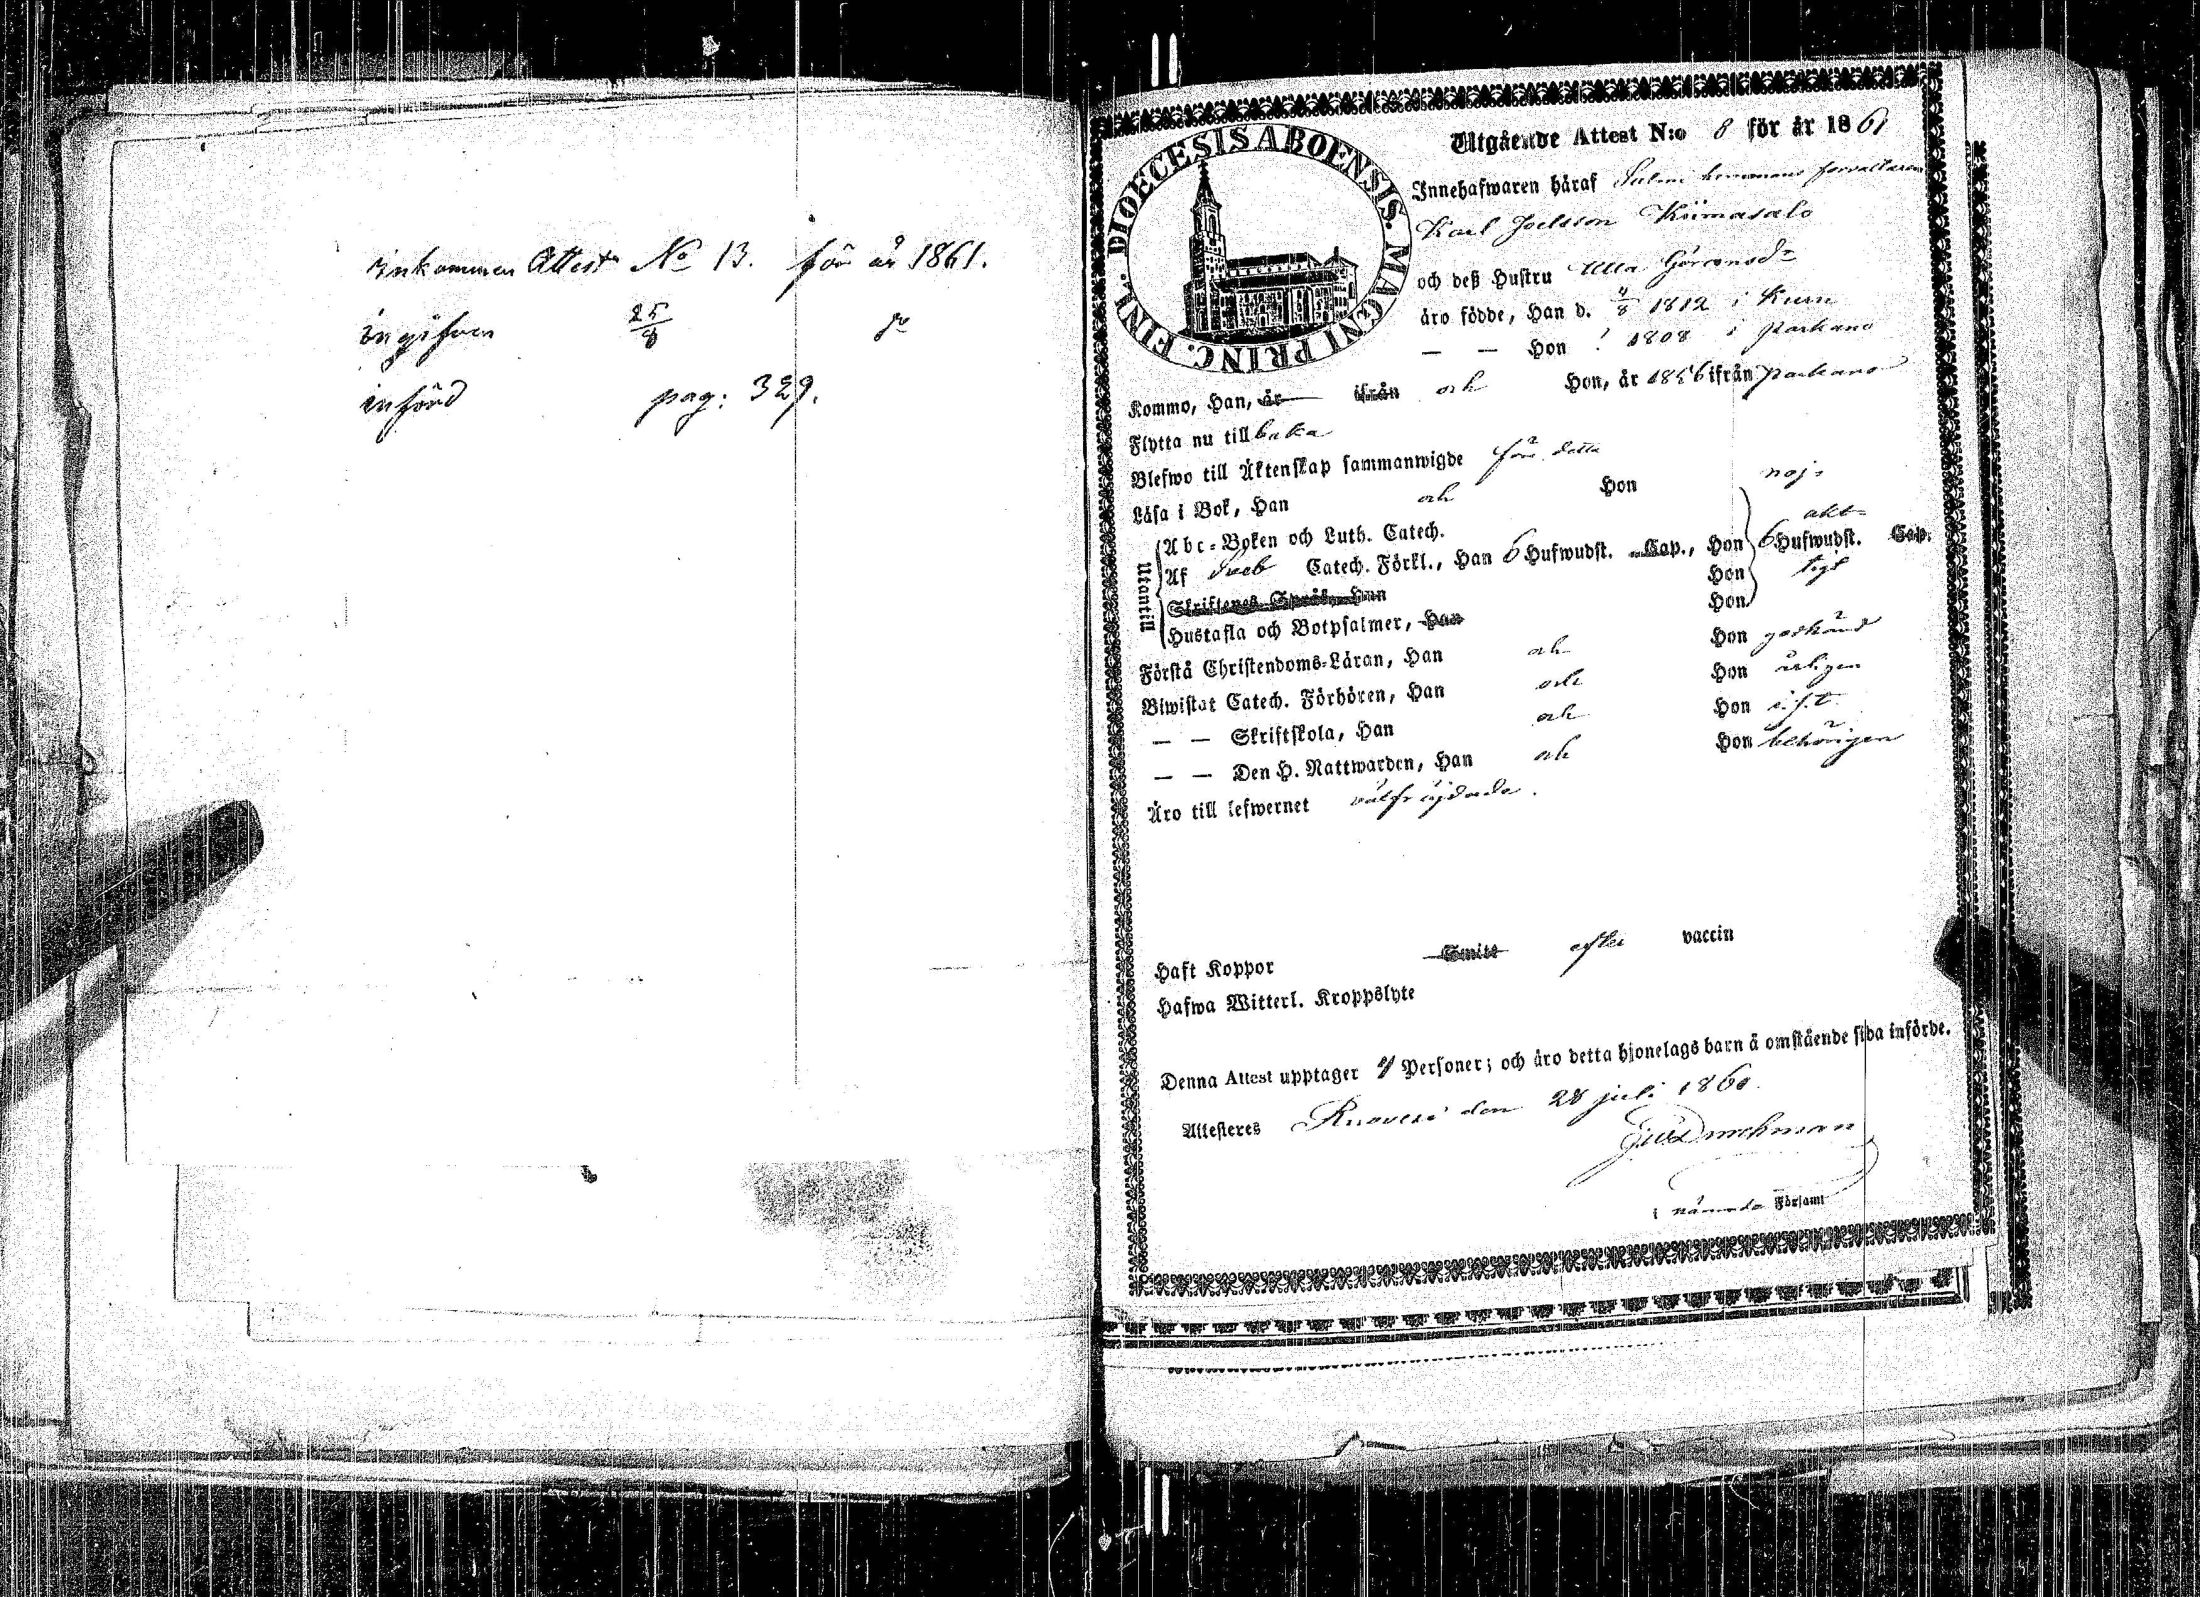 inkommen Attest No 13. för år 1861.
ingifven 25/8
införd pag: 329.
DIOECESIS ABOENSIS. MAGNI PRINC. FINL.
Utgående Attest N:o 8 för år 1861
Innehafwaren håraf hemmans förvaltaren
Karl Joelsson Kiimasalo
och deß Hustru Ulla Göransdr
äro födde, Han d. 4/8 1812 i
— — Hon 1808 i Parkano
Kommo, Han, år ifrån och Hon, år 1856 ifrån Parkano
Flytta nu tillbaka
Blefwo till Äktenskap sammanwigde för detta
Läsa i Bok, Han och Hon nöj-
Utantill
Abc-Boken och Luth. Catech. akt-
Af Sveb Catech. Förkl., Han 6 Hufwudst. Cap., Hon 6 Hufwudst. Cap.
Skriftenes Språk, Han Hon ligt
Hustafla och Botpsalmer, Han Hon
Förstå Christendoms-Läran, Han och Hon godkänd
Biwistat Catech. Förhören, Han och Hon årligen
— — Skriftskola, Han och Hon i.s.t.
— — Den H. Nattwarden, Han och Hon behörigen
Äro till lefwernet välfräjdade.
Haft Koppor Smitt efter vaccin
Hafwa Witterl. Kroppslyte
Denna Attest upptager Personer; och äro detta hjonelags barn å omstående sida införde.
Attesteres Ruovesi den 28 juli 1860.
i nämnda Församl